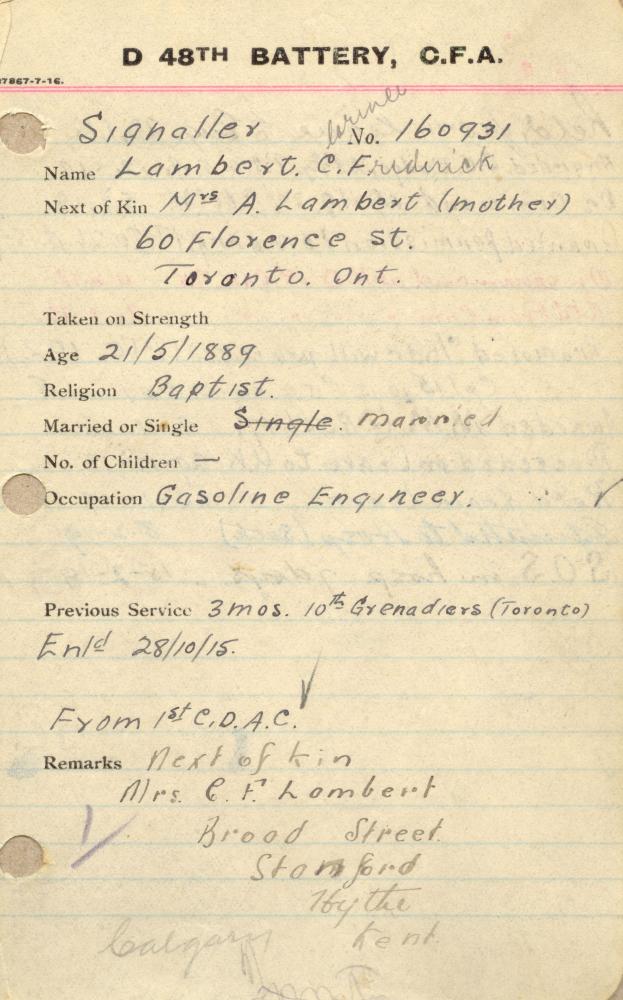 D 48TH BATTERY, C.F.A.
27867-7-16.
Signaller No. 160931
Name Lambert. C. Frederick
Next of Kin Mrs A. Lambert (mother)
60 Florence St.
Toronto. Ont.
Taken on Strength
Age 21/5/1889
Religion Baptist.
Married or Single Single. married
No. of Children —
Occupation Gasoline Engineer.
Previous Service 3 mos. 10th Grenadiers (Toronto)
Enld 28/10/15.
From 1st C.D.A.C.
Remarks Next of Kin
Mrs. C. F. Lambert
Broad Street.
Stanford
Hythe
Kent
Calgary